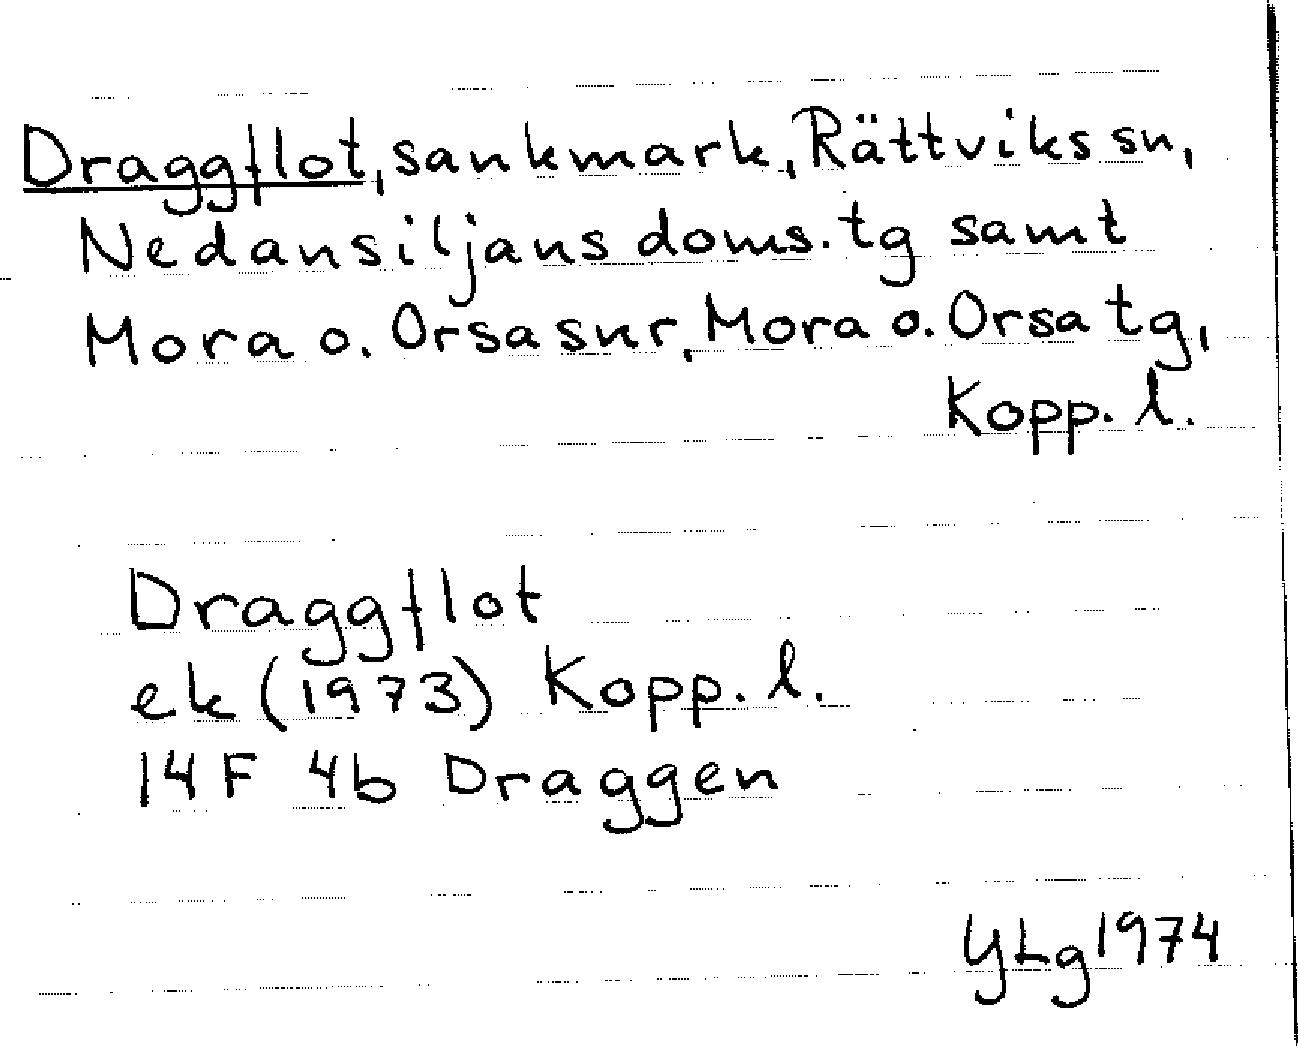 Draggflot, sankmark, Rättviks sn,
Nedansiljans doms.tg samt
Mora o. Orsa snr, Mora o. Orsa tg,
Kopp. l.
Draggflot
ek (1973) Kopp. l.
14F 4b Draggen
YLg 1974